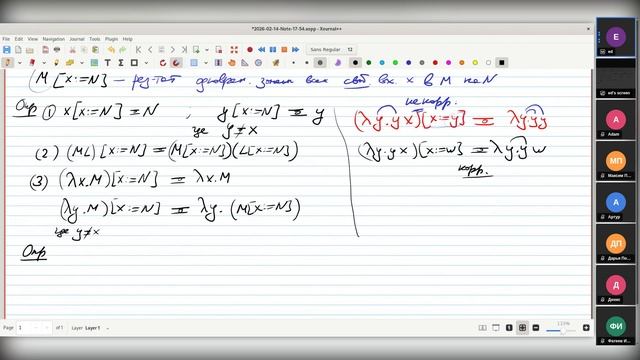 *2026-02-14-Note-17-54.xopp - Xournal++
File Edit View Navigation Journal Tools Plugin Help
Sans Regular 12
M[x:=N] — рез-тат одноврем. замен всех своб вх. x в M на N
Опр (1) x[x:=N] = N , y[x:=N] = y
где y≠x
(2) (ML)[x:=N] = (M[x:=N])(L[x:=N])
(3) (λx.M)[x:=N] = λx.M
(λy.M)[x:=N] = λy.(M[x:=N])
где y≠x
Опр
некорр.
(λy.yx)[x:=y] = λy.yy
(λy.yx)[x:=w] = λy.yw
корр.
Page 1 of 1 Layer Layer 1
E
ed
ed's screen
A
Adam
МП
Максим П...
А
Артур
ДП
Дарья По...
Д
Денис
ФИ
Фатеев И...